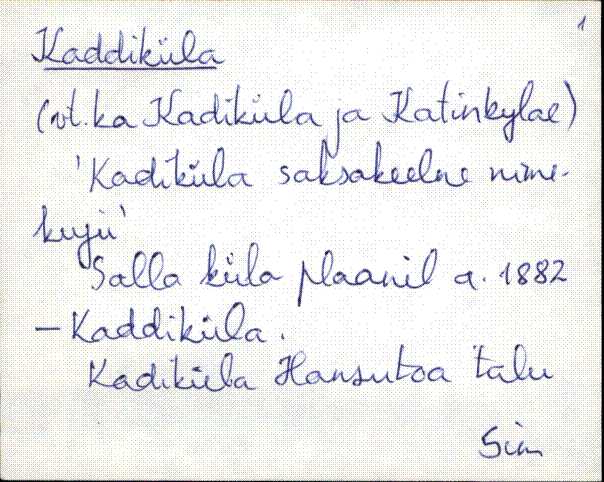 1
Kaddiküla
(vt. ka Kadiküla ja Katinkylae)
'Kadiküla saksakeelne nime-
kuju'
Salla küla plaanil a. 1882
– Kaddiküla.
Kadiküla Hansutoa talu
Sim